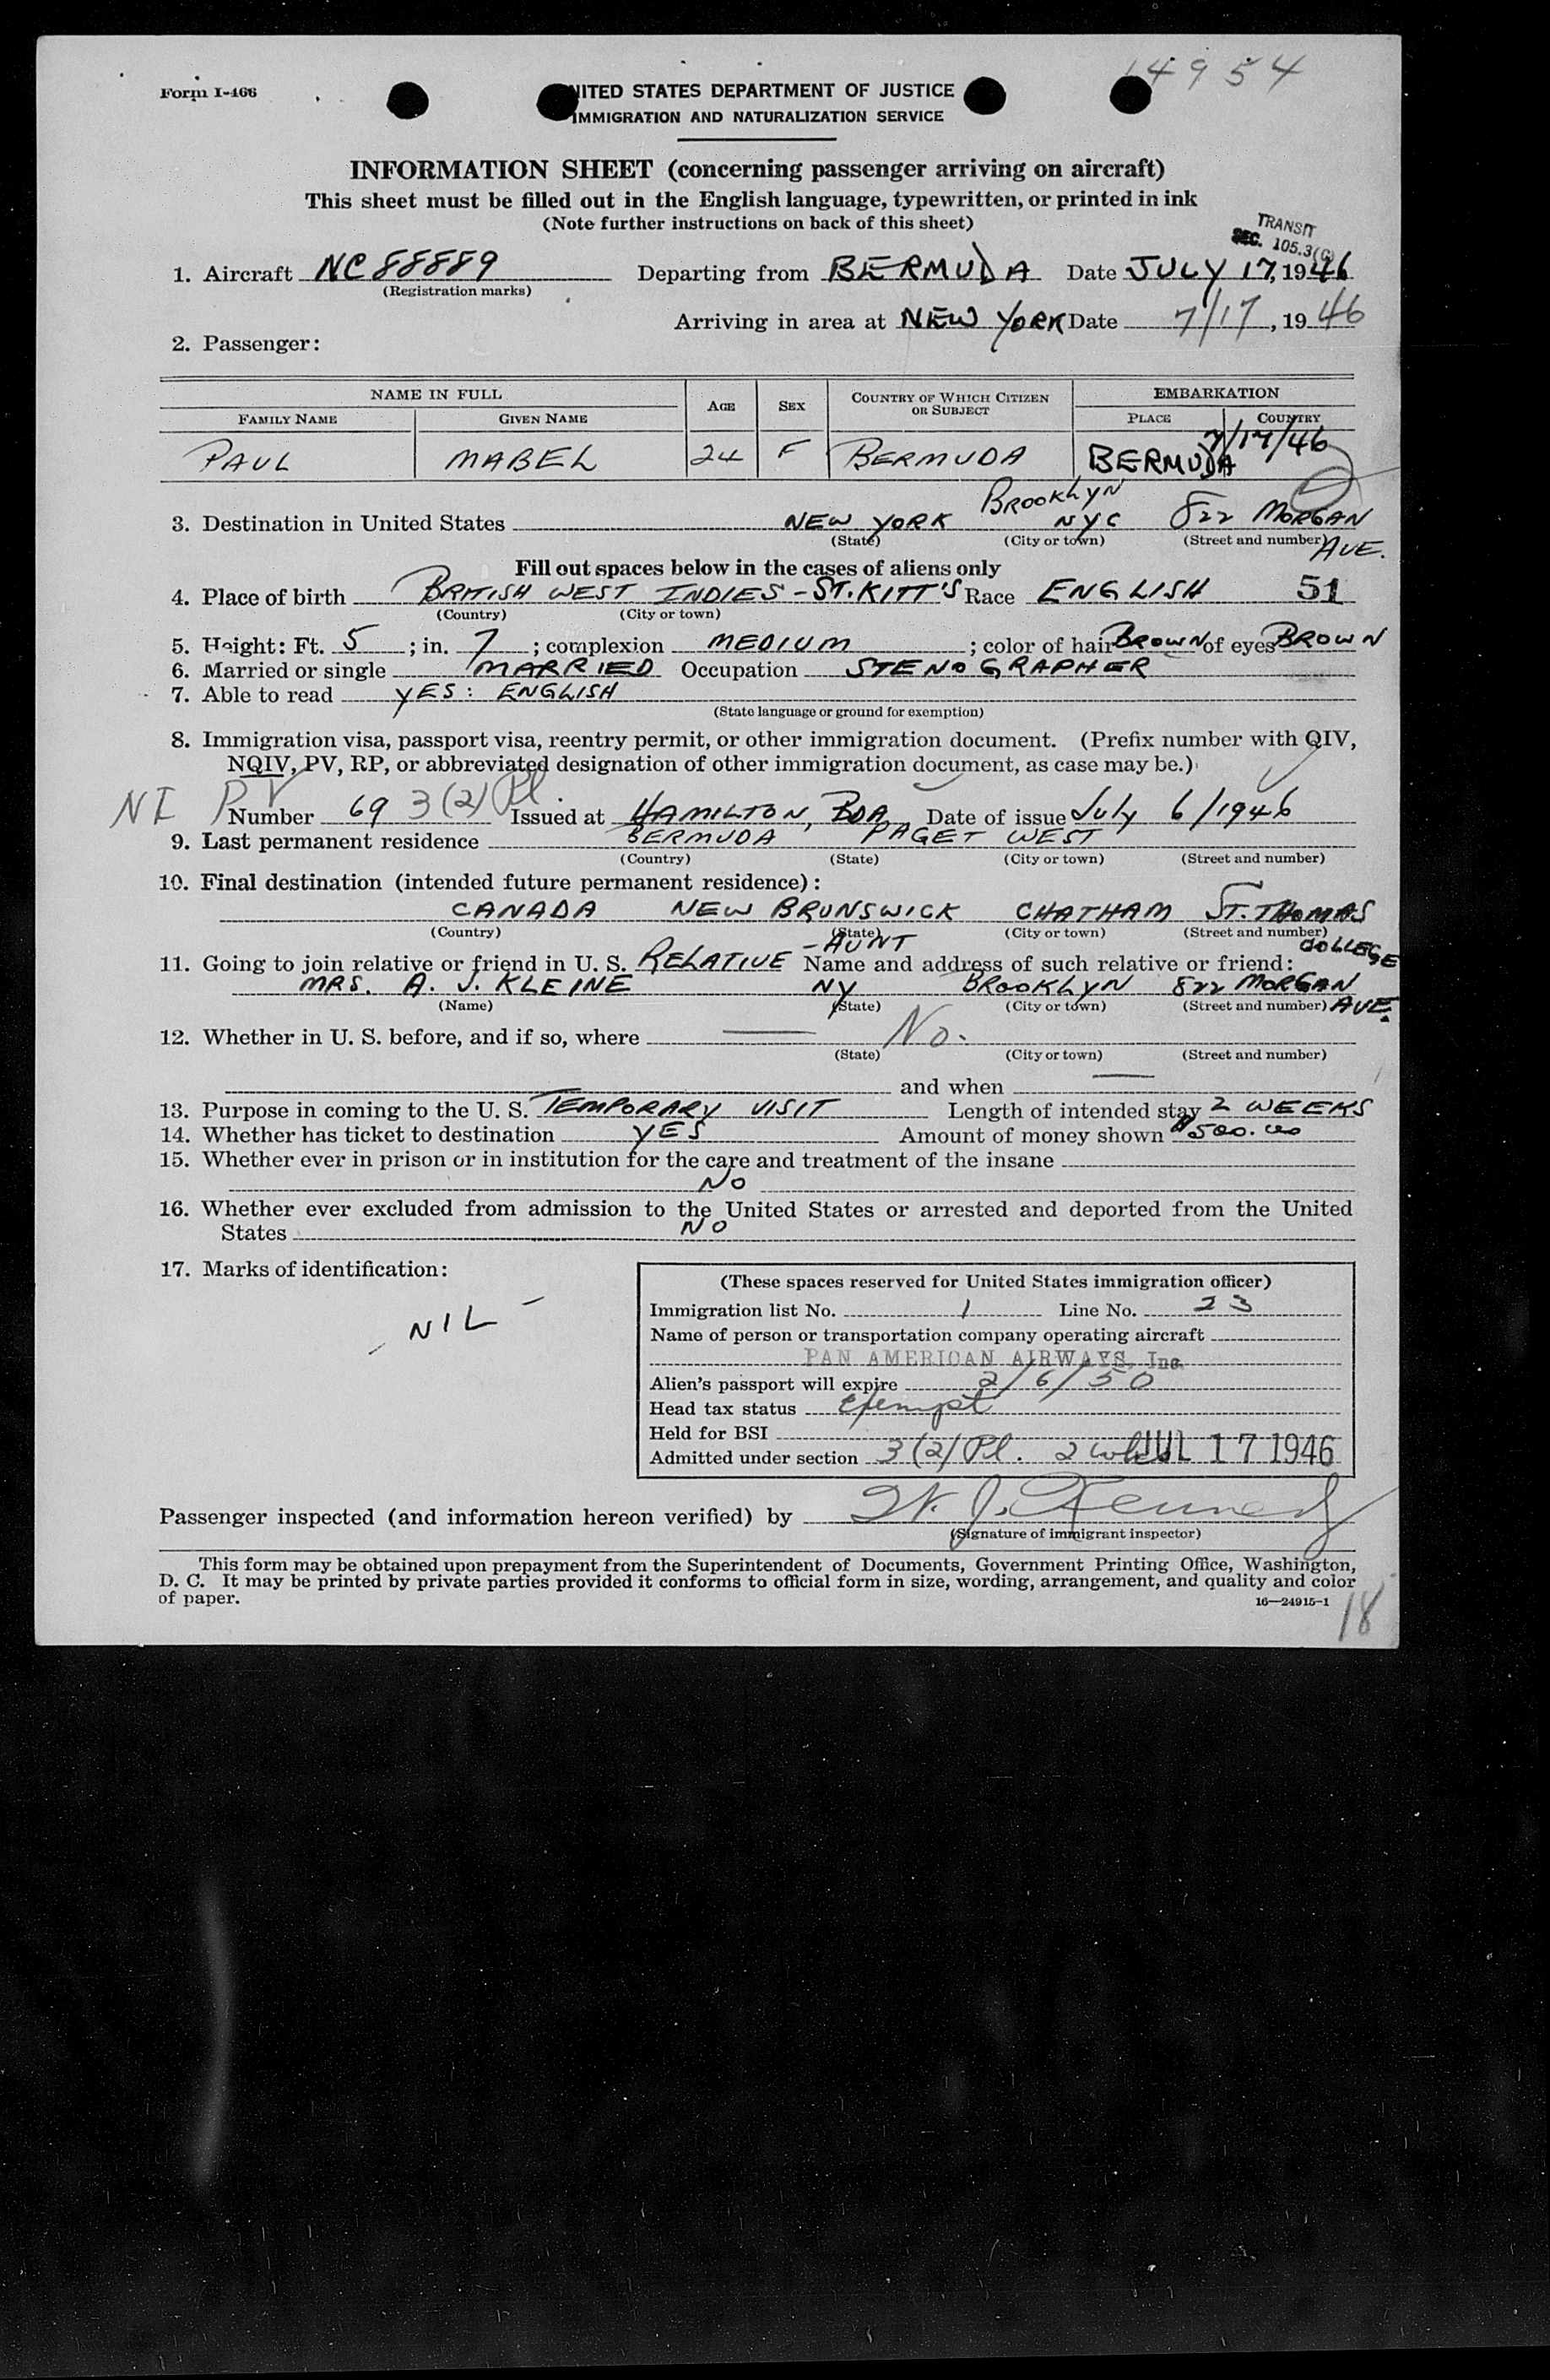 14954
Form I-466
UNITED STATES DEPARTMENT OF JUSTICE
IMMIGRATION AND NATURALIZATION SERVICE
INFORMATION SHEET (concerning passenger arriving on aircraft)
This sheet must be filled out in the English language, typewritten, or printed in ink
(Note further instructions on back of this sheet)
TRANSIT
SEC. 105.3(C)
1. Aircraft NC 88889 Departing from BERMUDA Date JULY 17, 1946
(Registration marks)
Arriving in area at NEW YORK Date 7/17, 1946
2. Passenger:
NAME IN FULL AGE SEX COUNTRY OF WHICH CITIZEN OR SUBJECT EMBARKATION
FAMILY NAME GIVEN NAME PLACE COUNTRY
7/17/46
PAUL MABEL 24 F BERMUDA BERMUDA
BROOKLYN
3. Destination in United States NEW YORK NYC 822 MORGAN
(State) (City or town) (Street and number) AVE.
Fill out spaces below in the cases of aliens only
4. Place of birth BRITISH WEST INDIES - ST. KITT'S Race ENGLISH 51
(Country) (City or town)
5. Height: Ft. 5; in. 7; complexion MEDIUM; color of hair BROWN of eyes BROWN
6. Married or single MARRIED Occupation STENOGRAPHER
7. Able to read YES: ENGLISH
(State language or ground for exemption)
8. Immigration visa, passport visa, reentry permit, or other immigration document. (Prefix number with QIV,
NQIV, PV, RP, or abbreviated designation of other immigration document, as case may be.)
NI PV Number 69 3(2) Pl. Issued at HAMILTON, BDA Date of issue July 6/1946
9. Last permanent residence BERMUDA PAGET WEST
(Country) (State) (City or town) (Street and number)
10. Final destination (intended future permanent residence):
CANADA NEW BRUNSWICK CHATHAM ST. THOMAS
(Country) (State) (City or town) (Street and number) COLLEGE
- AUNT
11. Going to join relative or friend in U. S. RELATIVE Name and address of such relative or friend:
MRS. A. J. KLEINE NY BROOKLYN 822 MORGAN
(Name) (State) (City or town) (Street and number) AVE.
12. Whether in U. S. before, and if so, where No.
(State) (City or town) (Street and number)
and when
13. Purpose in coming to the U. S. TEMPORARY VISIT Length of intended stay 2 WEEKS
14. Whether has ticket to destination YES Amount of money shown $500.00
15. Whether ever in prison or in institution for the care and treatment of the insane
NO
16. Whether ever excluded from admission to the United States or arrested and deported from the United
States NO
17. Marks of identification:
NIL
(These spaces reserved for United States immigration officer)
Immigration list No. 1 Line No. 23
Name of person or transportation company operating aircraft
PAN AMERICAN AIRWAYS, Inc.
Alien's passport will expire 2/6/50
Head tax status Exempt
Held for BSI
Admitted under section 3(2) Pl. 2 wks JUL 17 1946
Passenger inspected (and information hereon verified) by W. J. Kennedy
(Signature of immigrant inspector)
This form may be obtained upon prepayment from the Superintendent of Documents, Government Printing Office, Washington,
D. C. It may be printed by private parties provided it conforms to official form in size, wording, arrangement, and quality and color
of paper.
16—24915-1
18